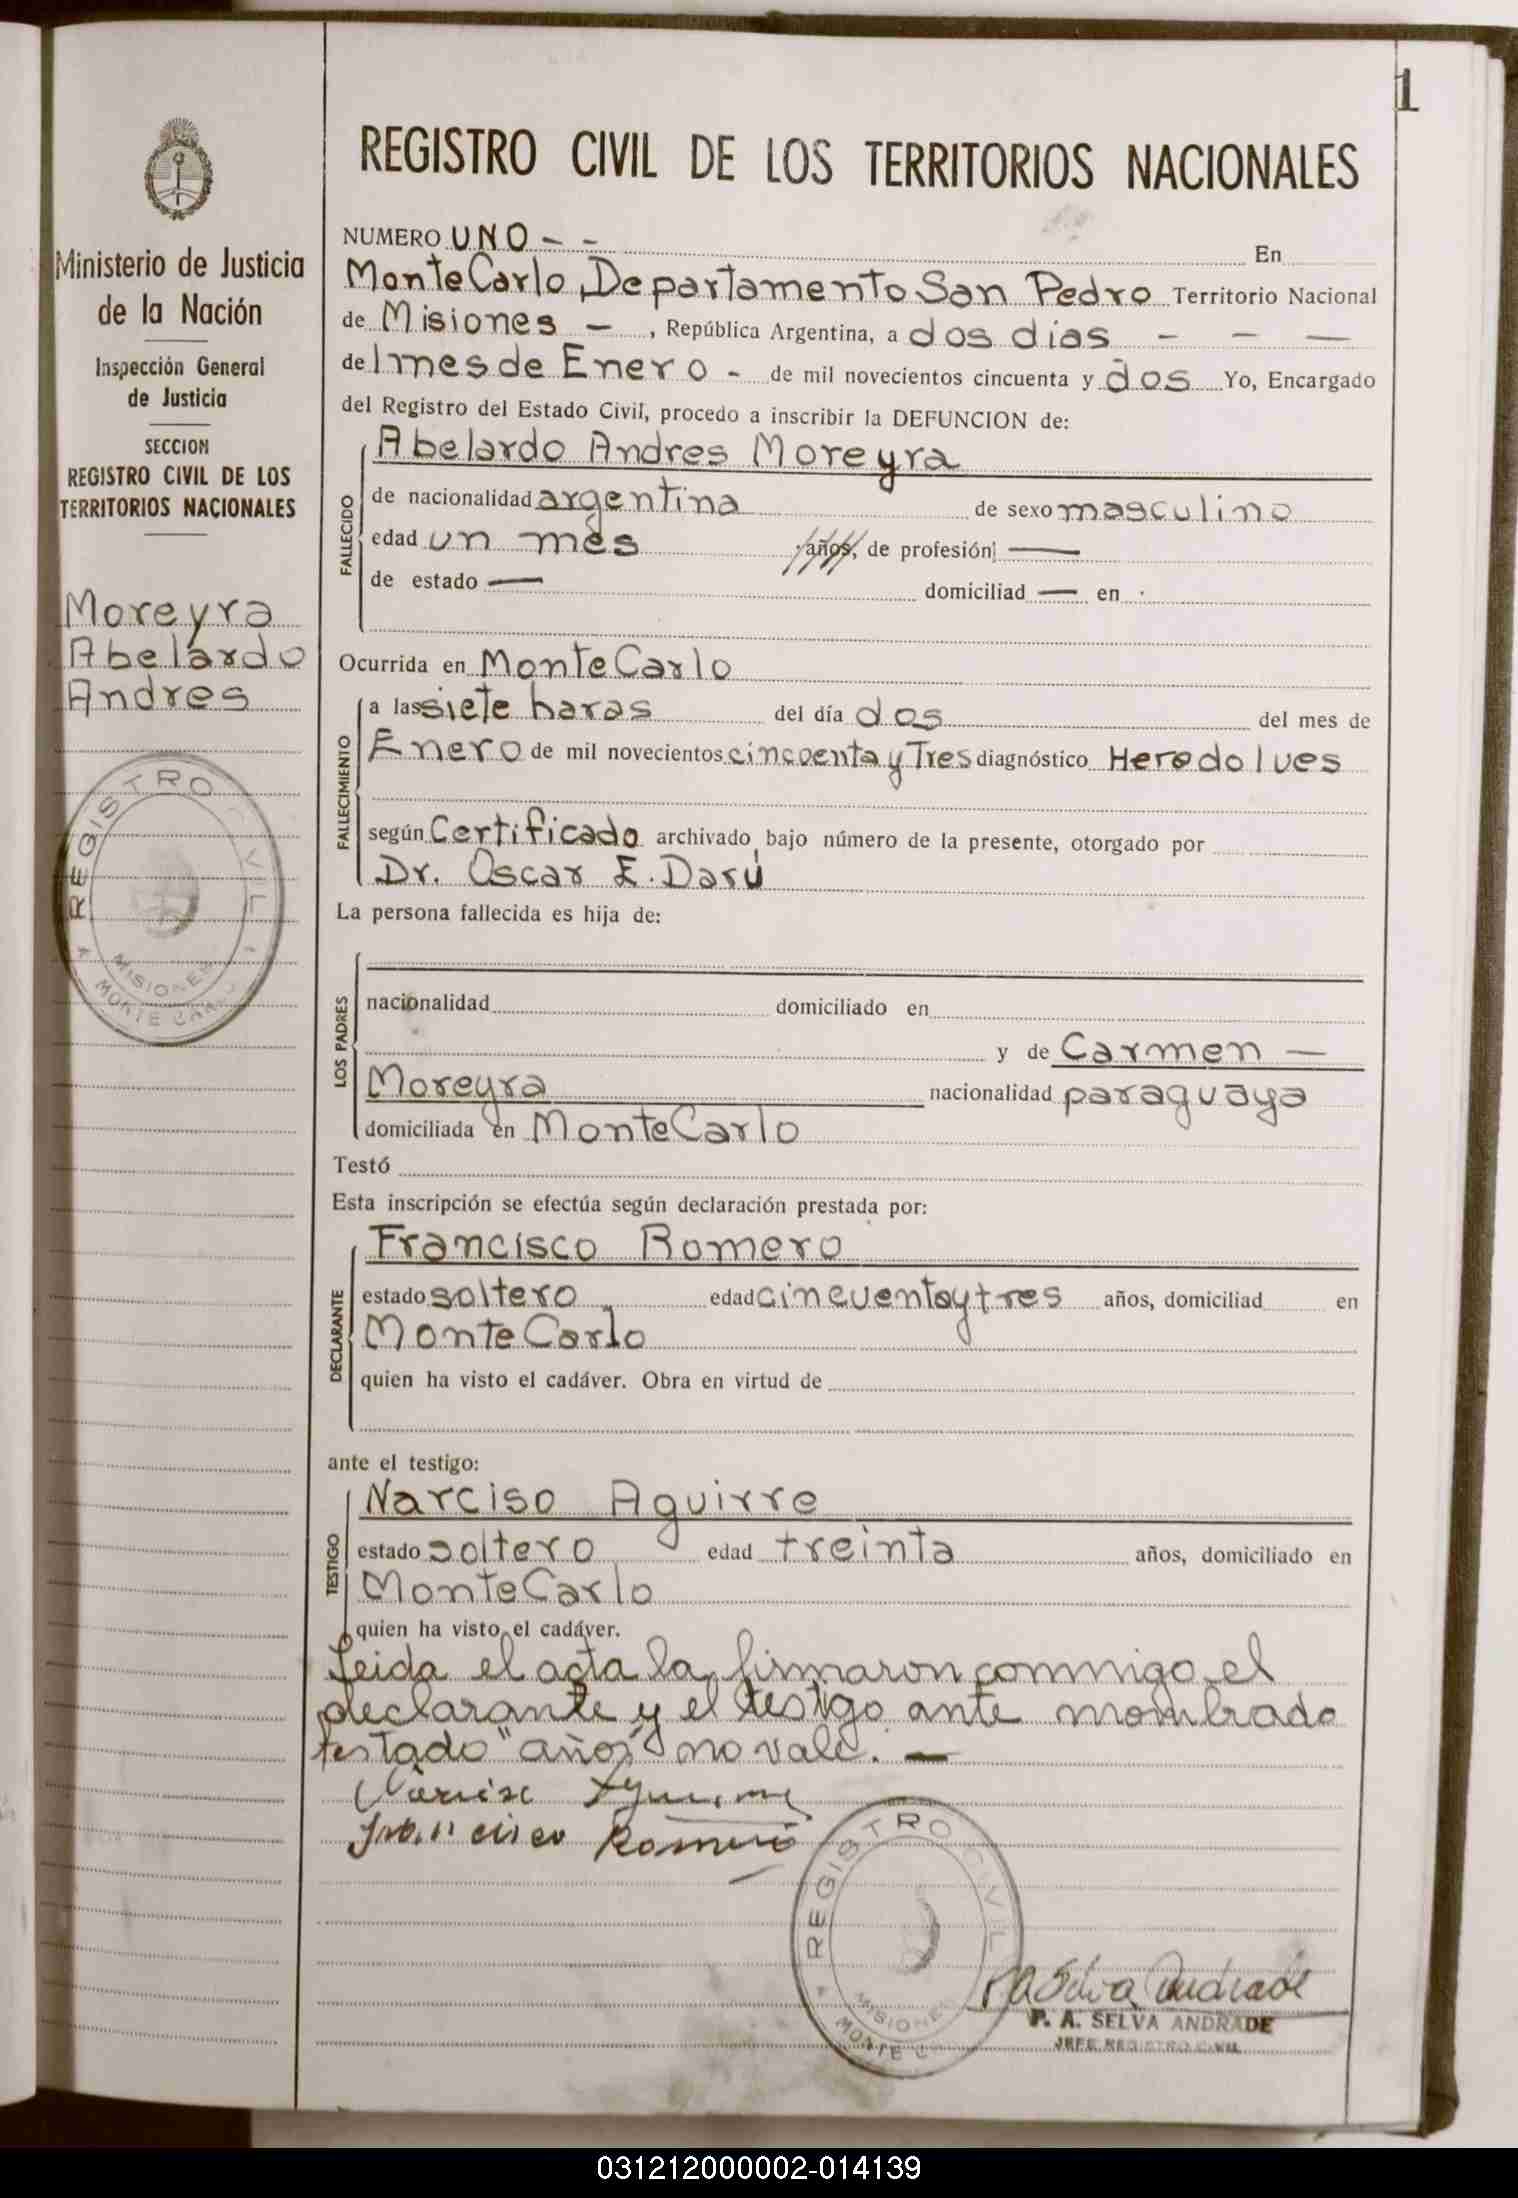 1
REGISTRO CIVIL DE LOS TERRITORIOS NACIONALES
Ministerio de Justicia
de la Nación
Inspección General
de Justicia
SECCION
REGISTRO CIVIL DE LOS
TERRITORIOS NACIONALES
Moreyra
Abelardo
Andres
REGISTRO CIVIL
MISIONES
MONTE CARLO
NUMERO UNO - - En
Monte Carlo, Departamento San Pedro Territorio Nacional
de Misiones - , República Argentina, a dos dias - - -
del mes de Enero - de mil novecientos cincuenta y dos Yo, Encargado
del Registro del Estado Civil, procedo a inscribir la DEFUNCION de:
FALLECIDO
Abelardo Andres Moreyra
de nacionalidad argentina de sexo masculino
edad un mes años, de profesión —
de estado — domiciliad — en
Ocurrida en Monte Carlo
FALLECIMIENTO
a las siete haras del día dos del mes de
Enero de mil novecientos cincoenta y Tres diagnóstico Heredolues
según Certificado archivado bajo número de la presente, otorgado por
Dr. Oscar E. Darú
La persona fallecida es hija de:
LOS PADRES
nacionalidad domiciliado en
y de Carmen —
Moreyra nacionalidad paraguaya
domiciliada en Monte Carlo
Testó
Esta inscripción se efectúa según declaración prestada por:
DECLARANTE
Francisco Romero
estado soltero edad cincuenta y tres años, domiciliad en
Monte Carlo
quien ha visto el cadáver. Obra en virtud de
ante el testigo:
TESTIGO
Narciso Aguirre
estado soltero edad treinta años, domiciliado en
Monte Carlo
quien ha visto el cadáver.
Leida el acta la firmaron conmigo el
declarante y el testigo ante mombrado
testado "años" no vale. —
Narciso Aguirre
Francisco Romero
REGISTRO CIVIL
MISIONES
MONTE C
P A Selva Andrade
P. A. SELVA ANDRADE
JEFE REGISTRO CIVIL
031212000002-014139